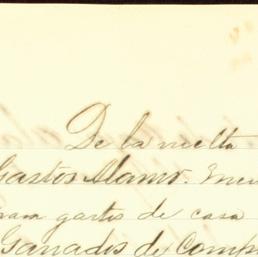 De la vuelta
Gastos Alamo.
para gastos de casa
Ganados de Comp